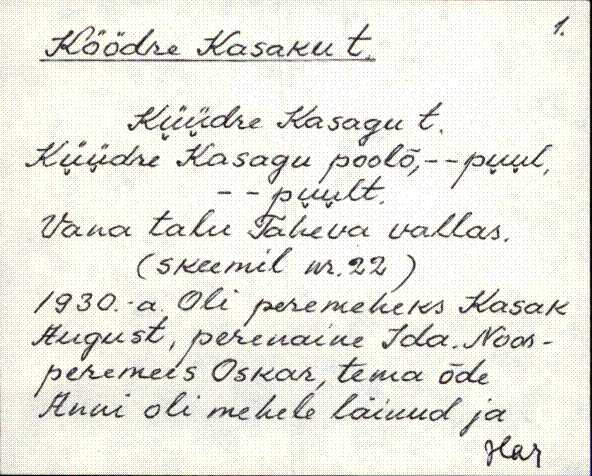 1.
Köödre Kasaku t.
Kü̬ü̬dre Kasagu t.
Kü̬ü̬dre Kasagu poolõ, -- pu̬u̬l,
-- pu̬u̬lt.
Vana talu Taheva vallas.
(skeemil nr. 22)
1930.-a. Oli peremeheks Kasak
August, perenaine Ida. Noos-
peremees Oskar, tema õde
Anni oli mehele läinud ja
Har